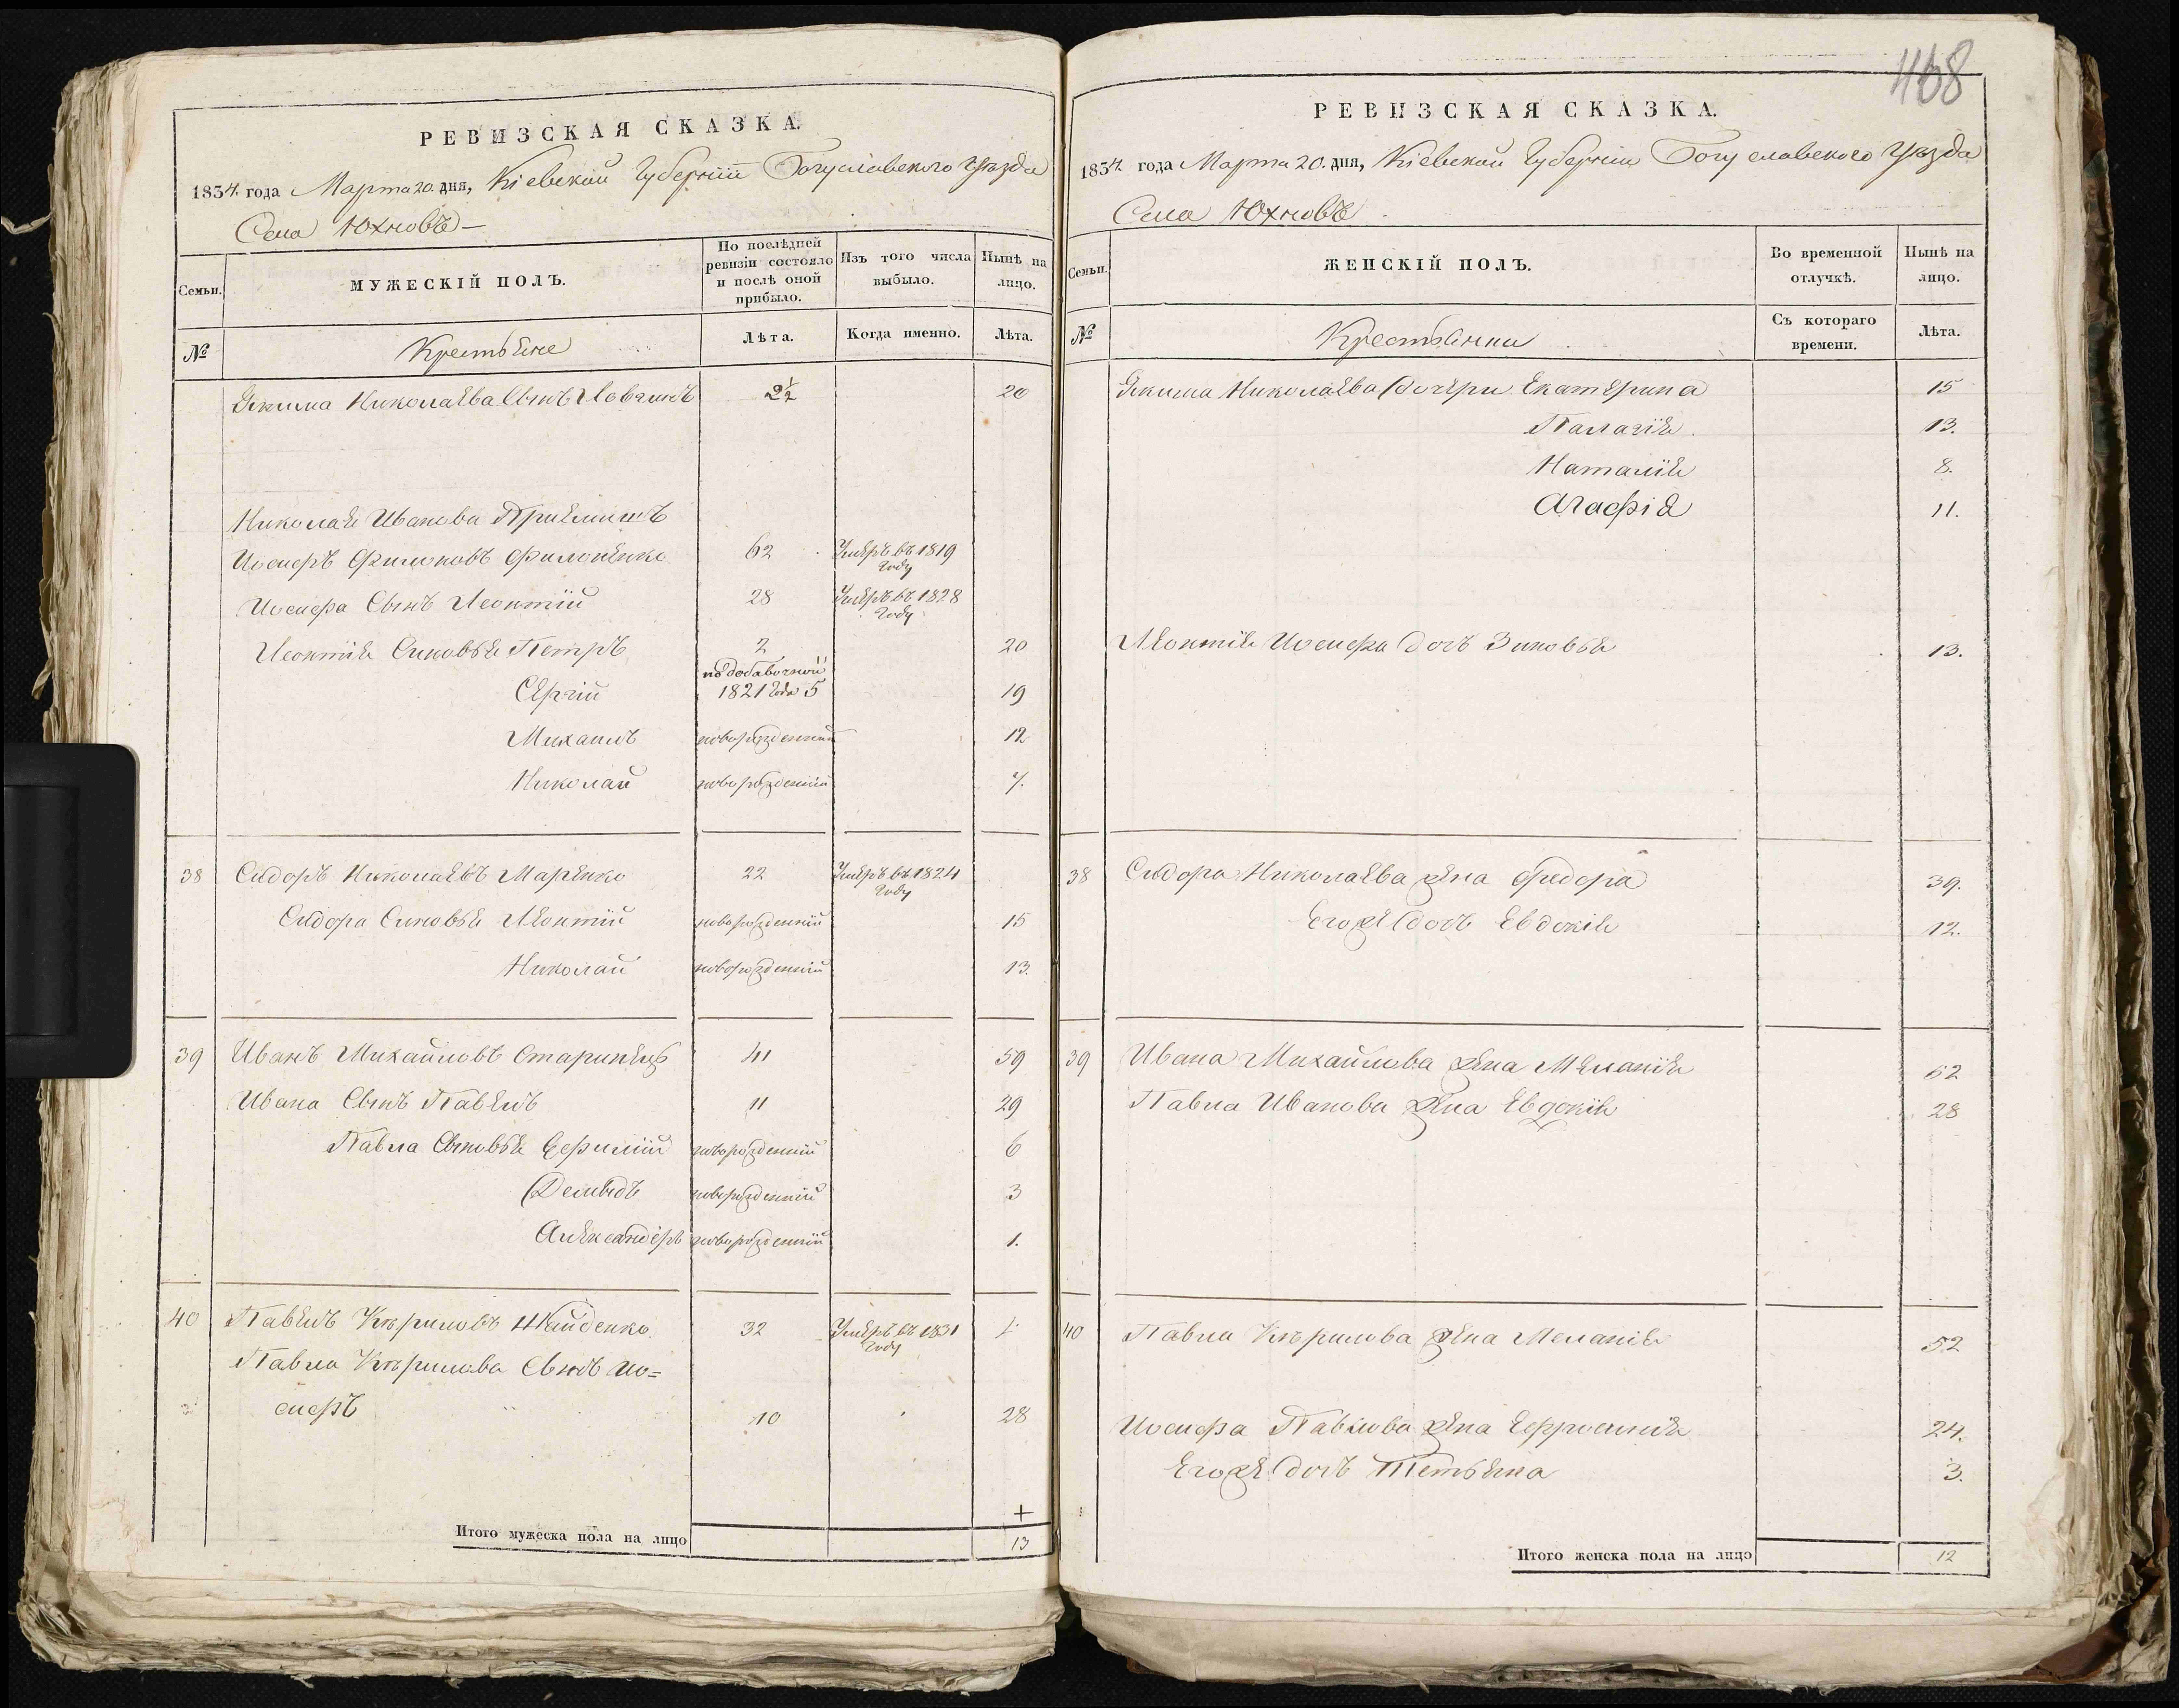 468
РЕВИЗСКАЯ СКАЗКА.
1834. года Марта 20. дня, Кіевской Губерніи Богуславского Уѣзда
Села Юхновъ —
Семьи.
МУЖЕСКІЙ ПОЛЪ.
По послѣдней ревизіи состояло и послѣ оной прибыло.
Изъ того числа выбыло.
Нынѣ на лицо.
№
Крестьяне
Лѣта.
Когда именно.
Лѣта.
Якима Николаева Сынъ 2½ 20
Николая Иванова Приемишъ
Иосифъ Филоновъ Филоненко 62 Умеръ въ 1819 Году
Иосифа Сынъ Леонтій 28 Умеръ въ 1828 Году
Леонтія Сыновья Петръ 2 20
Сергій по добавочной 1821 Года 5 19
Михаилъ новорожденный 12
Николай новорожденный 7.
38 Сидоръ Николаевъ Маренко 22 Умеръ въ 1824 Году
Сидора Сыновья Леонтій новорожденный 15
Николай новорожденный 13.
39 Иванъ Михайловъ 41 59
Ивана Сынъ Павелъ 11 29
Павла Сыновья Ефимій новорожденный 6
Демидъ новорожденный 3
Александеръ новорожденный 1.
40 Павелъ Кѣриловъ Найденко 32 Умеръ въ 1831 Году
Павла Кѣрилова Сынъ Ио=
сифъ 10 28
+
Итого мужеска пола на лицо 13
РЕВИЗСКАЯ СКАЗКА.
1834 года Марта 20. дня, Кіевской Губерніи Богуславского Уѣзда
Села Юхновъ
Семьи.
ЖЕНСКІЙ ПОЛЪ.
Во временной отлучкѣ.
Нынѣ на лицо.
№
Крестьянки
Съ котораго времени.
Лѣта.
Якима Николаева дочери Екатерина 15
Палагія 13.
Наталія 8.
Агафія 11.
Леонтія Иосифа дочь Зиновья 13.
38 Сидора Николаева жена Федора 39.
Егоже дочь Евдокія 12.
39 Ивана Михайлова жена Меланія 62
Павла Иванова жена Евдокія 28
40 Павла Кѣрилова жена Меланія 52
Иосифа Павлова жена Ефросинія 24.
Егоже дочь Тетьяна 3.
Итого женска пола на лицо 12